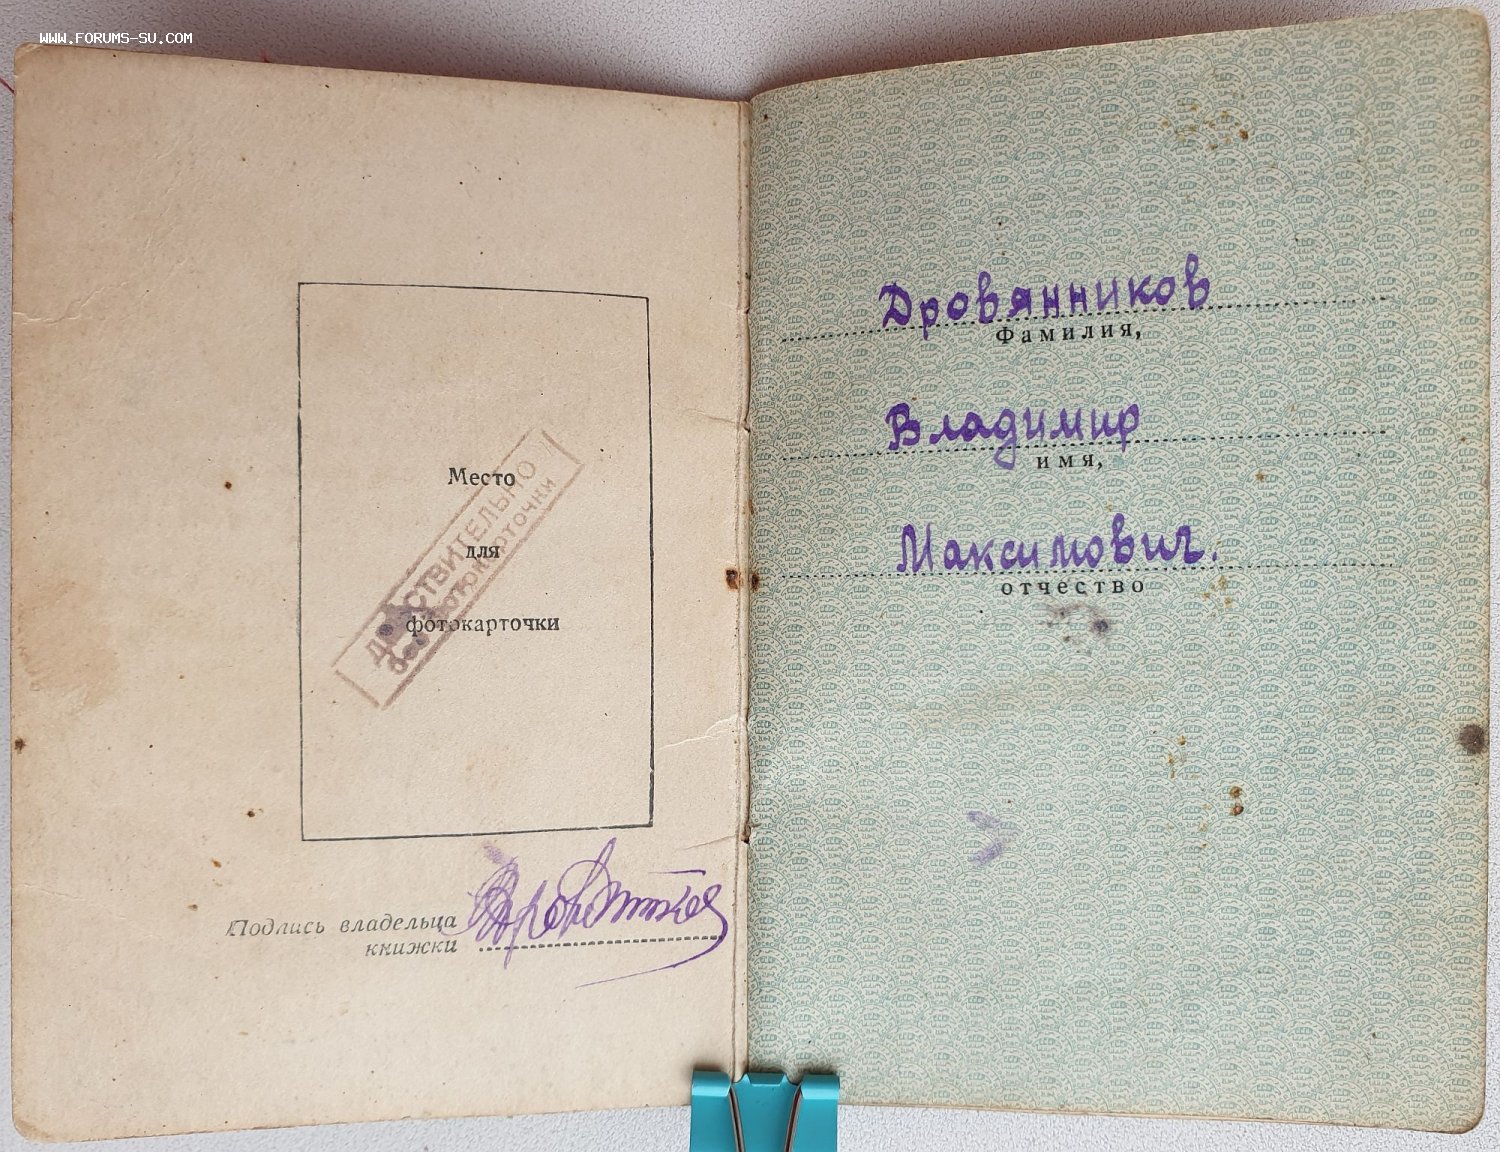 WWW.FORUMS-SU.COM
Место
для
фотокарточки
ДЕЙСТВИТЕЛЬНО
без фотокарточки
Подпись владельца
книжки
Дровянников
Фамилия,
Владимир
имя,
Максимович.
отчество